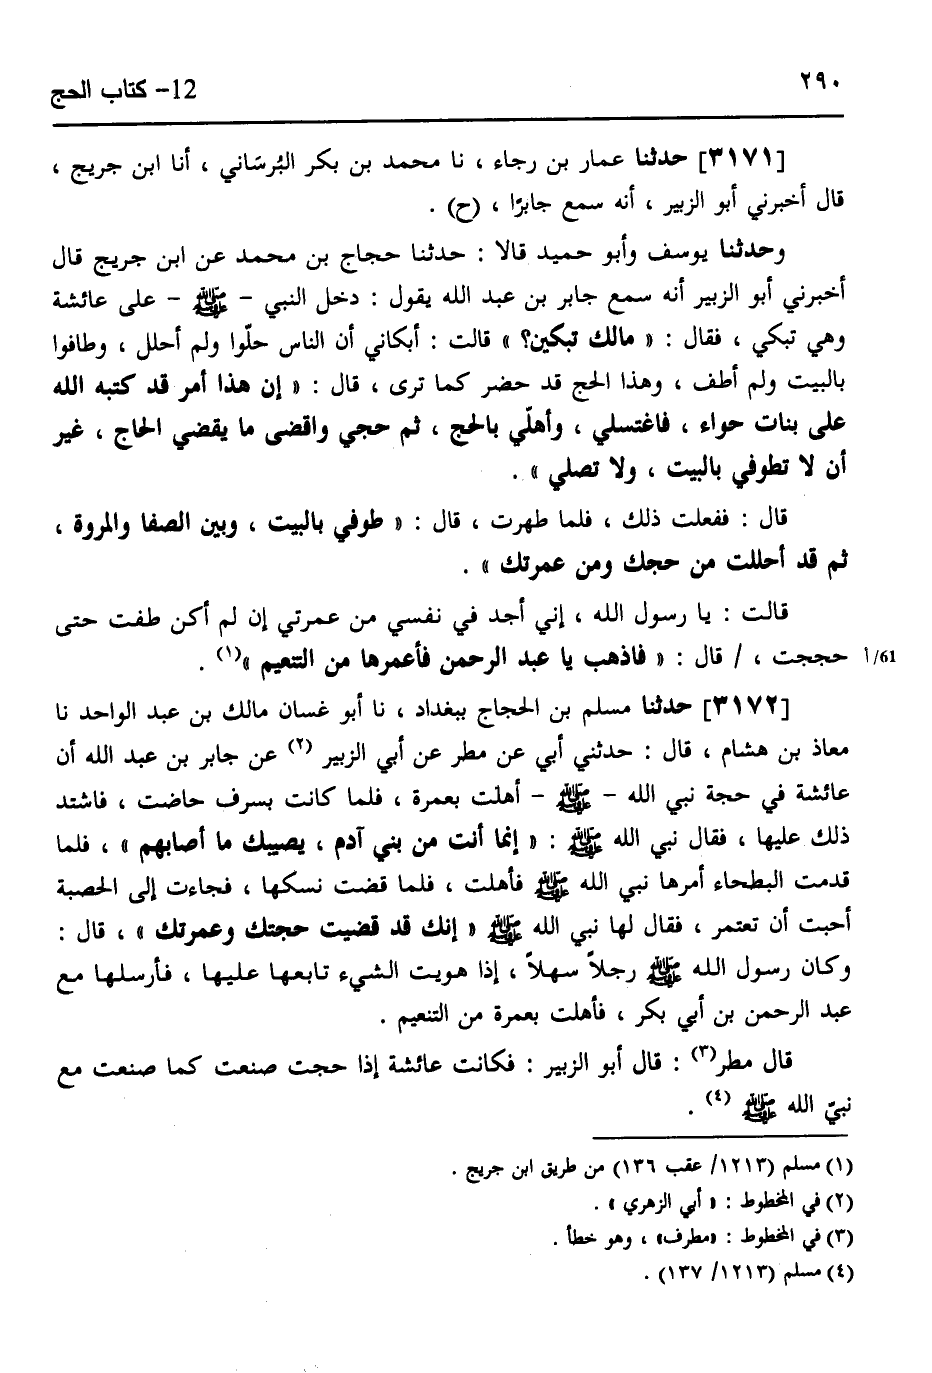 ٢٩٠
12- كتاب الحج
[٣١٧١] حدثنا عمار بن رجاء ، نا محمد بن بكر البُرسَاني ، أنا ابن جريج ،
قال أخبرني أبو الزبير ، أنه سمع جابرًا ، (ح) .
وحدثنا يوسف وأبو حميد قالا : حدثنا حجاج بن محمد عن ابن جريج قال
أخبرني أبو الزبير أنه سمع جابر بن عبد الله يقول : دخل النبي - ﷺ - على عائشة
وهي تبكي ، فقال : « مالك تبكين؟ » قالت : أبكاني أن الناس حلّوا ولم أحلل ، وطافوا
بالبيت ولم أطف ، وهذا الحج قد حضر كما ترى ، قال : « إن هذا أمر قد كتبه الله
على بنات حواء ، فاغتسلي ، وأهلّي بالحج ، ثم حجي واقضى ما يقضي الحاج ، غير
أن لا تطوفي بالبيت ، ولا تصلي » .
قال : ففعلت ذلك ، فلما طهرت ، قال : « طوفي بالبيت ، وبين الصفا والمروة ،
ثم قد أحللت من حجك ومن عمرتك » .
قالت : يا رسول الله ، إني أجد في نفسي من عمرتي إن لم أكن طفت حتى
61/أ حججت ، / قال : « فاذهب يا عبد الرحمن فأعمرها من التنعيم »(١) .
[٣١٧٢] حدثنا مسلم بن الحجاج ببغداد ، نا أبو غسان مالك بن عبد الواحد نا
معاذ بن هشام ، قال : حدثني أبي عن مطر عن أبي الزبير (٢) عن جابر بن عبد الله أن
عائشة في حجة نبي الله - ﷺ - أهلّت بعمرة ، فلما كانت بسرف حاضت ، فاشتد
ذلك عليها ، فقال نبي الله ﷺ : « إنما أنت من بني آدم ، يصيبك ما أصابهم » ، فلما
قدمت البطحاء أمرها نبي الله ﷺ فأهلت ، فلما قضت نسكها ، فجاءت إلى الحصبة
أحبت أن تعتمر ، فقال لها نبي الله ﷺ « إنك قد قضيت حجتك وعمرتك » ، قال :
وكان رسول الله ﷺ رجلاً سهلاً ، إذا هويت الشيء تابعها عليها ، فأرسلها مع
عبد الرحمن بن أبي بكر ، فأهلت بعمرة من التنعيم .
قال مطر(٣) : قال أبو الزبير : فكانت عائشة إذا حجت صنعت كما صنعت مع
نبيّ الله ﷺ (٤) .
(١) مسلم (١٢١٣/ عقب ١٣٦) من طريق ابن جريج .
(٢) في المخطوط : « أبي الزهري » .
(٣) في المخطوط : «مطرف» ، وهو خطأ .
(٤) مسلم (١٢١٣/ ١٣٧) .